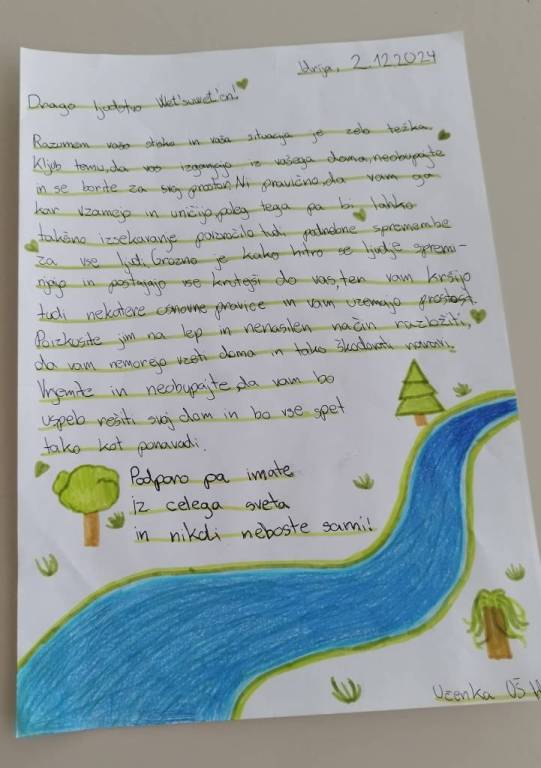 Idrija, 2.12.2024
Drago ljudstvo Wet'suwet'en!
Razumem vašo stisko in vaša situacija je zelo težka.
Kljub temu, da vas izganjajo iz vašega doma, neobupajte
in se borite za svoj prostor. Ni pravično, da vam ga
kar vzamejo in uničijo, poleg tega pa bi lahko
takšno izsekavanje povzročilo tudi podnebne spremembe
za vse ljudi. Grozno je kako hitro se ljudje spremi-
njajo in postajajo vse krutejši do vas, ter vam kršijo
tudi nekatere osnovne pravice in vam vzemajo prostost.
Poizkusite jim na lep in nenasilen način razložiti,
da vam nemorejo vzeti doma in tako škodovati naravi.
Vrjemite in neobupajte, da vam bo
uspelo rešiti svoj dom in bo vse spet
tako kot ponavadi.
Podporo pa imate
iz celega sveta
in nikdi neboste sami!
Učenka OŠ